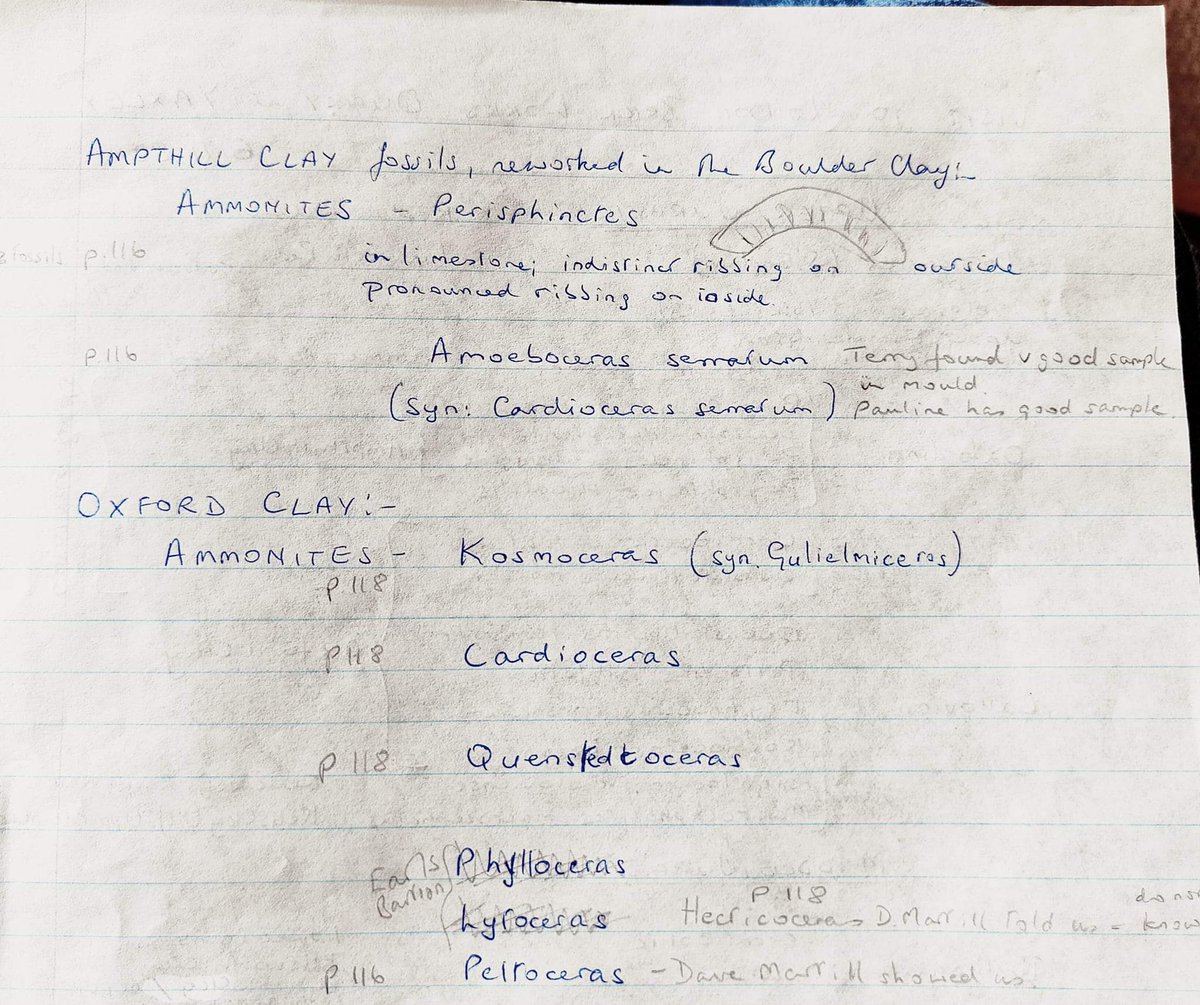 AMPTHILL CLAY fossils, reworked in the Boulder Clay:-
AMMONITES - Perisphinctes
p.116 in limestone; indistinct ribbing on outside
pronounced ribbing on inside.
p.116 Amoeboceras serratum Terry found v good sample
in mould.
(syn: Cardioceras serratum) Pauline has good sample.
OXFORD CLAY:-
AMMONITES - Kosmoceras (syn. Gulielmiceras)
p.118
p118 Cardioceras
p 118 - Quenstedtoceras
Earls Barton Phylloceras
p.118
Lytoceras Hecticoceras D. Marrill told us - do not know
p 116 Peltoceras - Dave Marrill showed us.